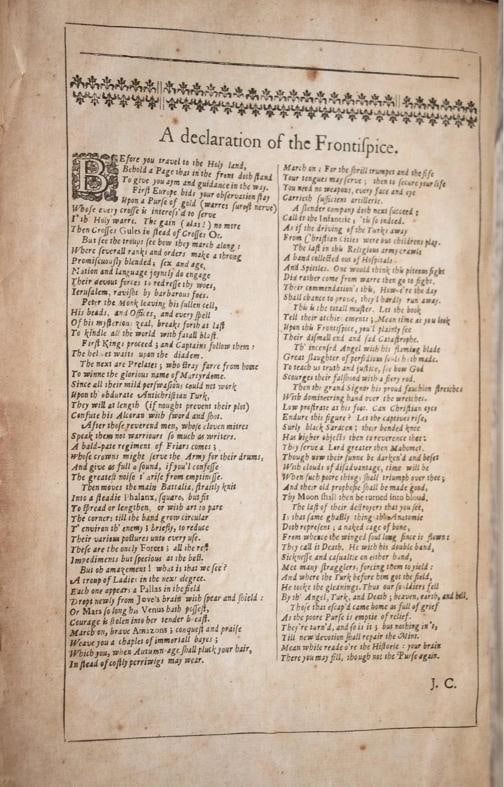 A declaration of the Frontispice.
BEfore you travel to the Holy land,
Behold a Page that in the front doth stand
To give you aym and guidance in the way.
First Europe bids your observation stay
Upon a Purse of gold (warres surest nerve)
Whose every crosse is interess'd to serve
I'th Holy warre. The gain (alas!) no more
Then Crosses Gules in stead of Crosses Or.
But see the troups see how they march along:
Where severall ranks and orders make a throng
Promiscuously blended, sex and age,
Nation and language joyntly do engage
Their devout forces to redresse thy woes,
Jerusalem, ravisht by barbarous foes.
Peter the Monk leaving his sullen cell,
His beads, and Offices, and every spell
Of his mysterious zeal, breaks forth at last
To kindle all the world with fatall blast.
First Kings proceed; and Captains follow them:
The helmet waits upon the diadem.
The next are Prelates; who stray farre from home
To winne the glorious name of Martyrdome.
Since all their mild perswasions could not work
Upon th' obdurate Antichristian Turk,
They will at length (if nought prevent their plot)
Confute his Alcoran with sword and shot.
After those reverend men, whose cloven mitres
Speak them not warriours so much as writers.
A bald-pate regiment of Friars comes;
Whose crowns might serve the Army for their drums,
And give as full a sound, if you'l confesse
The greatest noise t'arise from emptinesse.
Then moves the main Battalia, straitly knit
Into a steadie Phalanx, square, but fit
To spread or lengthen, or with art to pare
The corners till the band grow circular
T' environ th' enemy; briefly, to reduce
Their various postures unto every use.
These are the onely Forces; all the rest
Impediments but specious at the best.
But oh amazement! what is that we see?
A troup of Ladies in the next degree.
Each one appears a Pallas in the field
Dropt newly from Jove's brain with spear and shield:
Or Mars so long his Venus hath possest,
Courage is stolen into her tender breast.
March on, brave Amazons; conquest and praise
Weave you a chaplet of immortall bayes;
Which you, when Autumn-age shall pluck your hair,
In stead of costly perriwigs may wear.
March on: For the shrill trumpet and the fife
Your tongues may serve; then to secure your life
You need no weapons, every face and eye
Carrieth sufficient artillerie.
A slender company doth next succeed;
Call it the Infanterie; 'tis so indeed.
As if the driving of the Turks away
From Christian Cities were but childrens play.
The last in this Religious army crawle
A band collected out of Hospitals
And Spittles. One would think this piteous fight
Did rather come from warre then go to fight.
Their commendation's this, How-e're the day
Shall chance to prove, they'l hardly run away.
This is the totall muster. Let the book
Tell their atchievements; Mean time as you look
Upon this Frontispice, you'l plainly see
Their dismall end and sad Catastrophe.
Th' incensed Angel with his flaming blade
Great slaughter of perfidious souls hath made.
To teach us truth and justice, see how God
Scourges their falshood with a fiery rod.
Then the grand Signor his proud fauchion stretches
With domineering hand over the wretches.
Low prostrate at his foot. Can Christian eyes
Endure this figure? Let the captives rise,
Surly black Saracen; their bended knee
Has higher objects then to reverence thee:
They serve a Lord greater then Mahomet.
Though now their sunne be darken'd and beset
With clouds of disadvantage, time will be
When such poore things shall triumph over thee;
And their old prophesie shall be made good,
Thy Moon shall then be turned into bloud.
The last of their destroyers that you see,
Is that same ghastly thing this Anatomie
Doth represent; a naked cage of bone,
From whence the winged soul long since is flown:
They call it Death. He with his double band,
Sicknesse and casualtie on either hand,
Met many stragglers, forcing them to yield:
And where the Turk before him got the field,
He tooke the gleanings. Thus our souldiers fell
By th' Angel, Turk, and Death; heaven, earth, and hell.
Those that escap'd came home as full of grief
As the poore Purse is emptie of relief.
They're turn'd, and so is it; but nothing in't,
Till new devotion shall repair the Mint.
Mean while reade o're the Historie: your brain
There you may fill, though not the Purse again.
J. C.